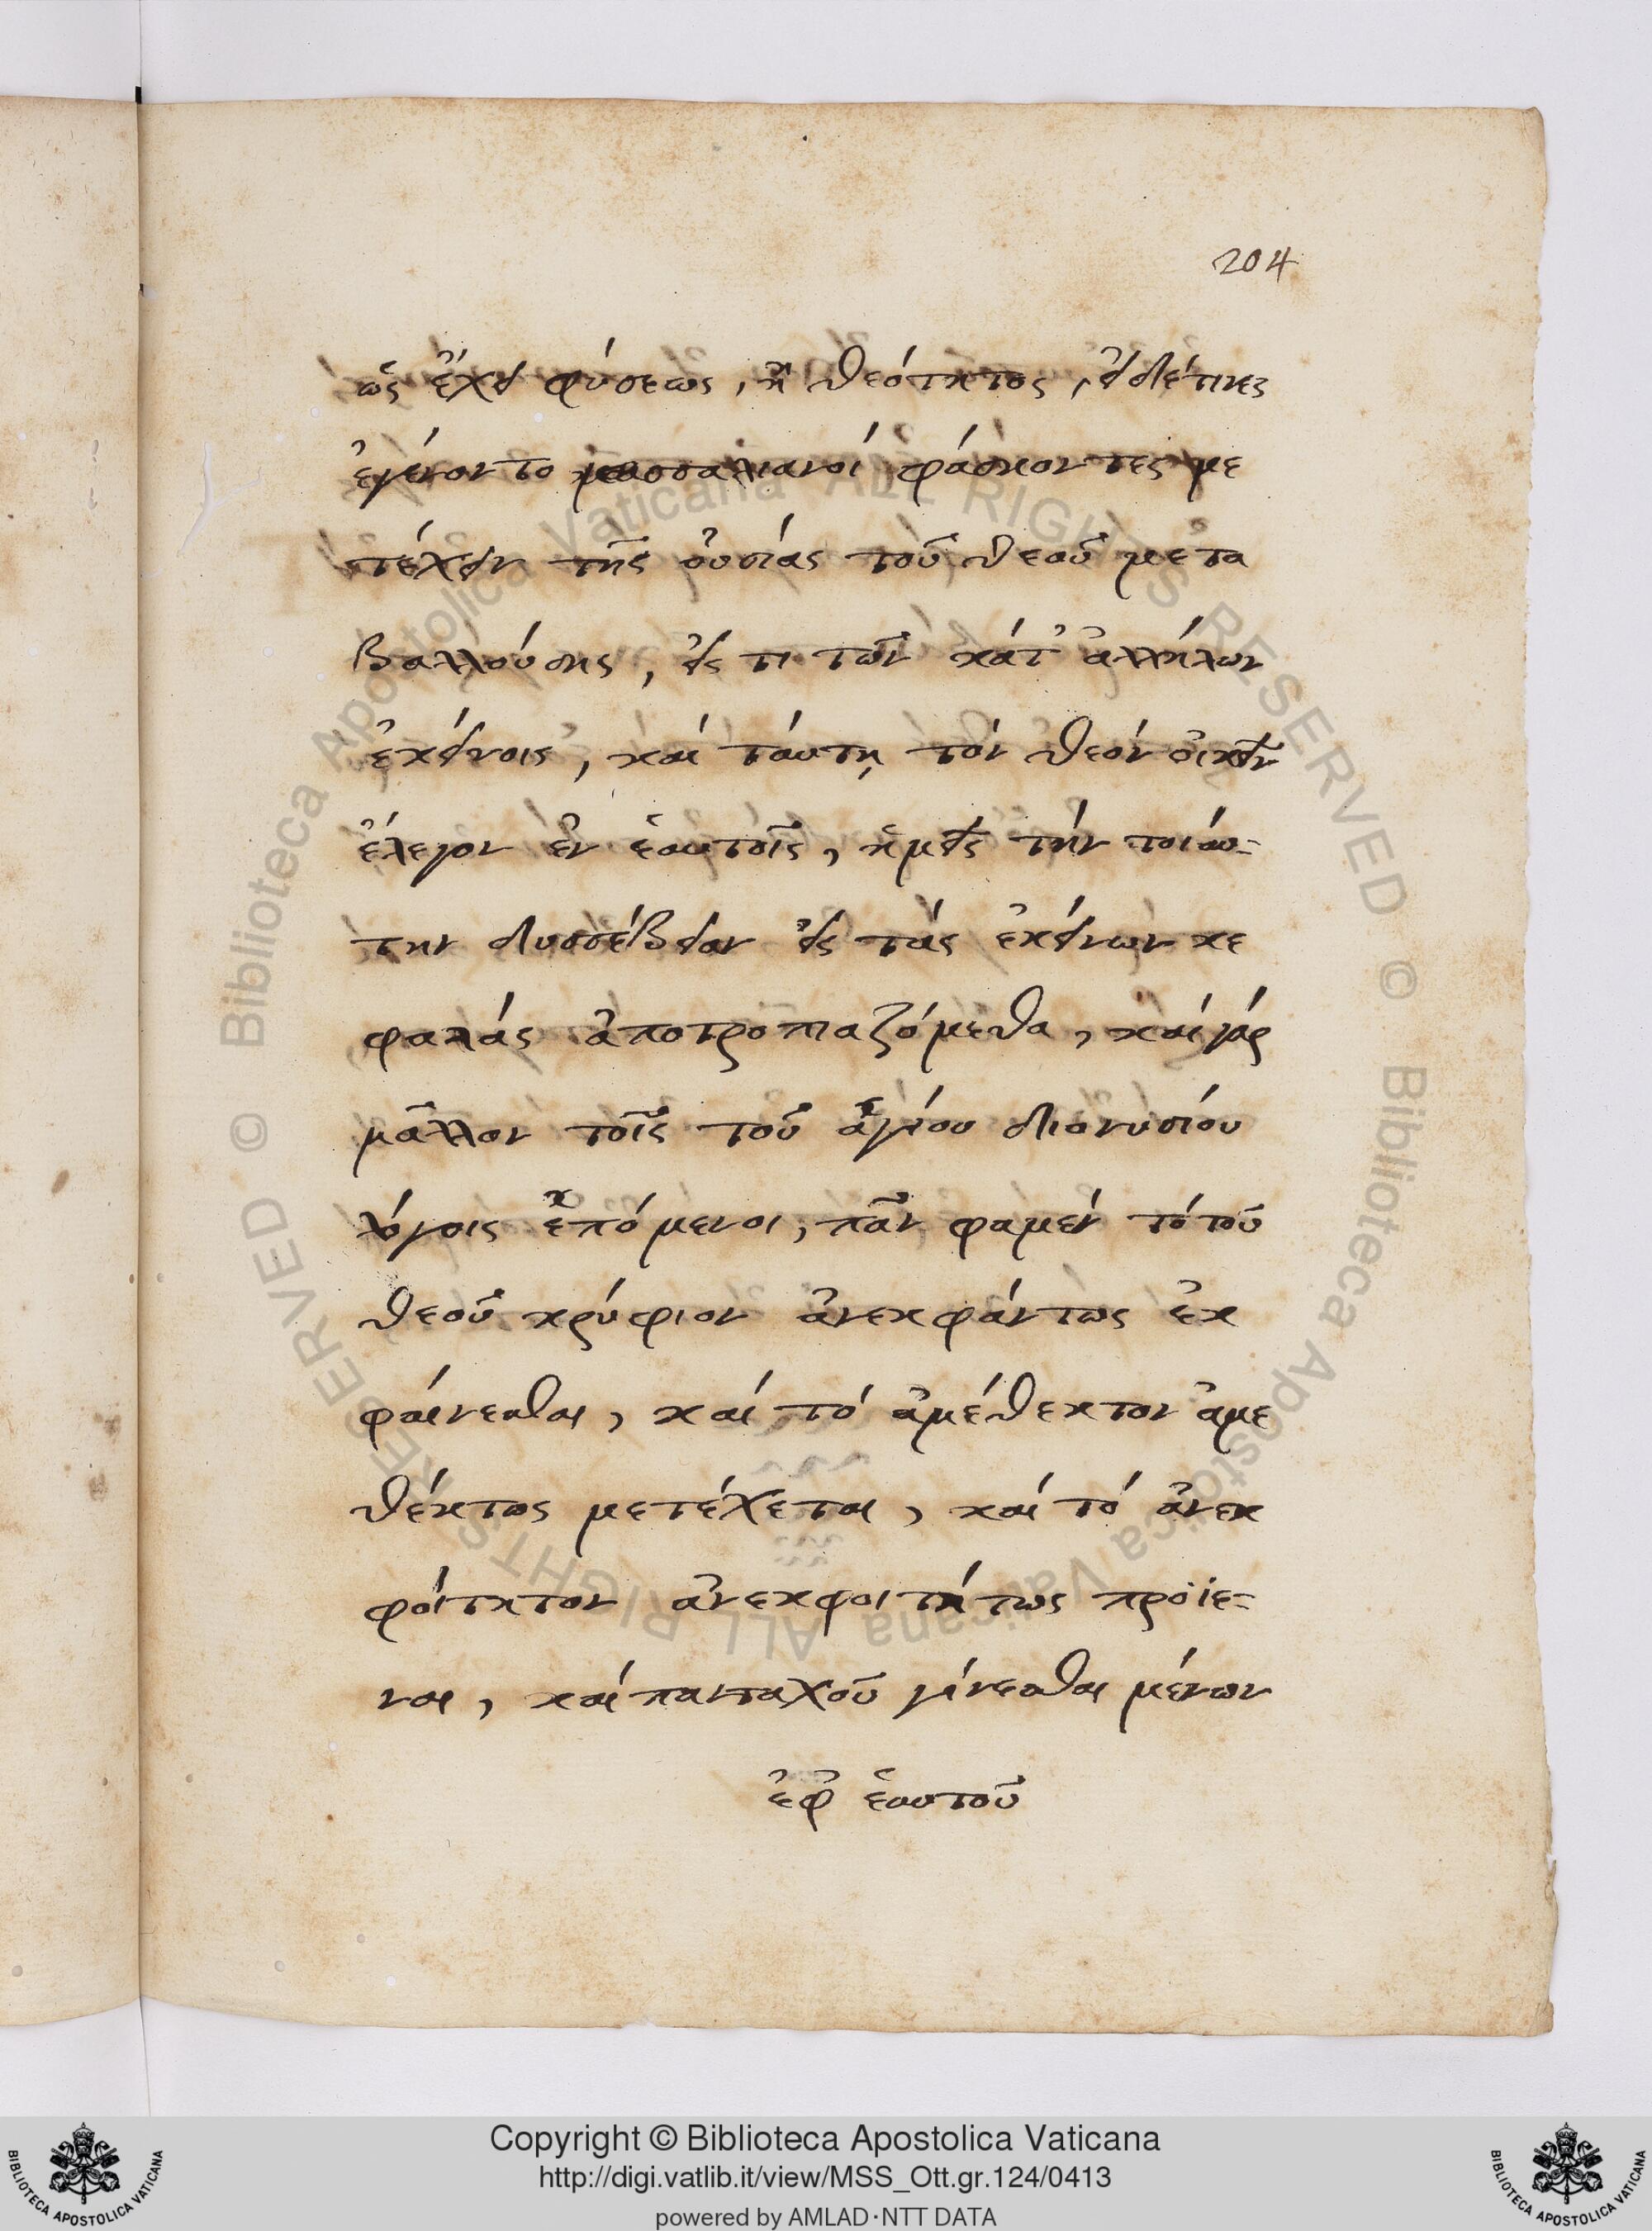 204
ὡς ἔχει φύσεως, ἢ θεότητος, εἰ δέ τινες
ἐγένοντο μασσαλιανοί φάσκοντες με
τέχειν τῆς οὐσίας τοῦ θεοῦ μετα
βαλλούσης, εἴς τι τῶν κάτ' ἀλλήλων
ἐκείνοις, καί ταύτη τόν θεόν οἰκεῖν
ἔλεγον ἐν ἑαυτοῖς, ἡμεῖς τήν τοιαύ-
την δυσσέβειαν εἰς τάς ἐκείνων κε
φαλάς ἀποτροπιαζόμεθα, καί γάρ
μᾶλλον τοῖς τοῦ ἁγίου διονυσίου
λόγοις ἑπόμενοι, πᾶν φαμέν τό τοῦ
θεοῦ κρύφιον ἀνεκφάντως ἐκ
φαίνεσθαι, καί τό ἀμέθεκτον ἀμε
θέκτως μετέχεται, καί τό ἀνεκ
φοίτητον ἀνεκφοιτήτως προϊέ-
ναι, καί πανταχοῦ γίνεσθαι μένων
ἐφ' ἑαυτοῦ
© Biblioteca Apostolica Vaticana ALL RIGHTS RESERVED © Biblioteca Apostolica Vaticana ALL RIGHTS RESERVED
BIBLIOTECA APOSTOLICA VATICANA
Copyright © Biblioteca Apostolica Vaticana
http://digi.vatlib.it/view/MSS_Ott.gr.124/0413
powered by AMLAD·NTT DATA
BIBLIOTECA APOSTOLICA VATICANA